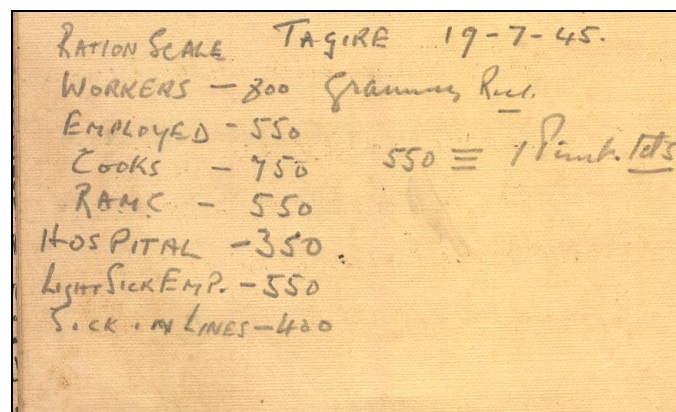 RATION SCALE TAGIRE 19-7-45.
WORKERS - 800 Grammes Rice.
EMPLOYED - 550
COOKS - 750 550 ≡ 1 Pint.
RAMC - 550
HOSPITAL - 350.
LIGHT SICK EMP. - 550
SICK IN LINES - 400